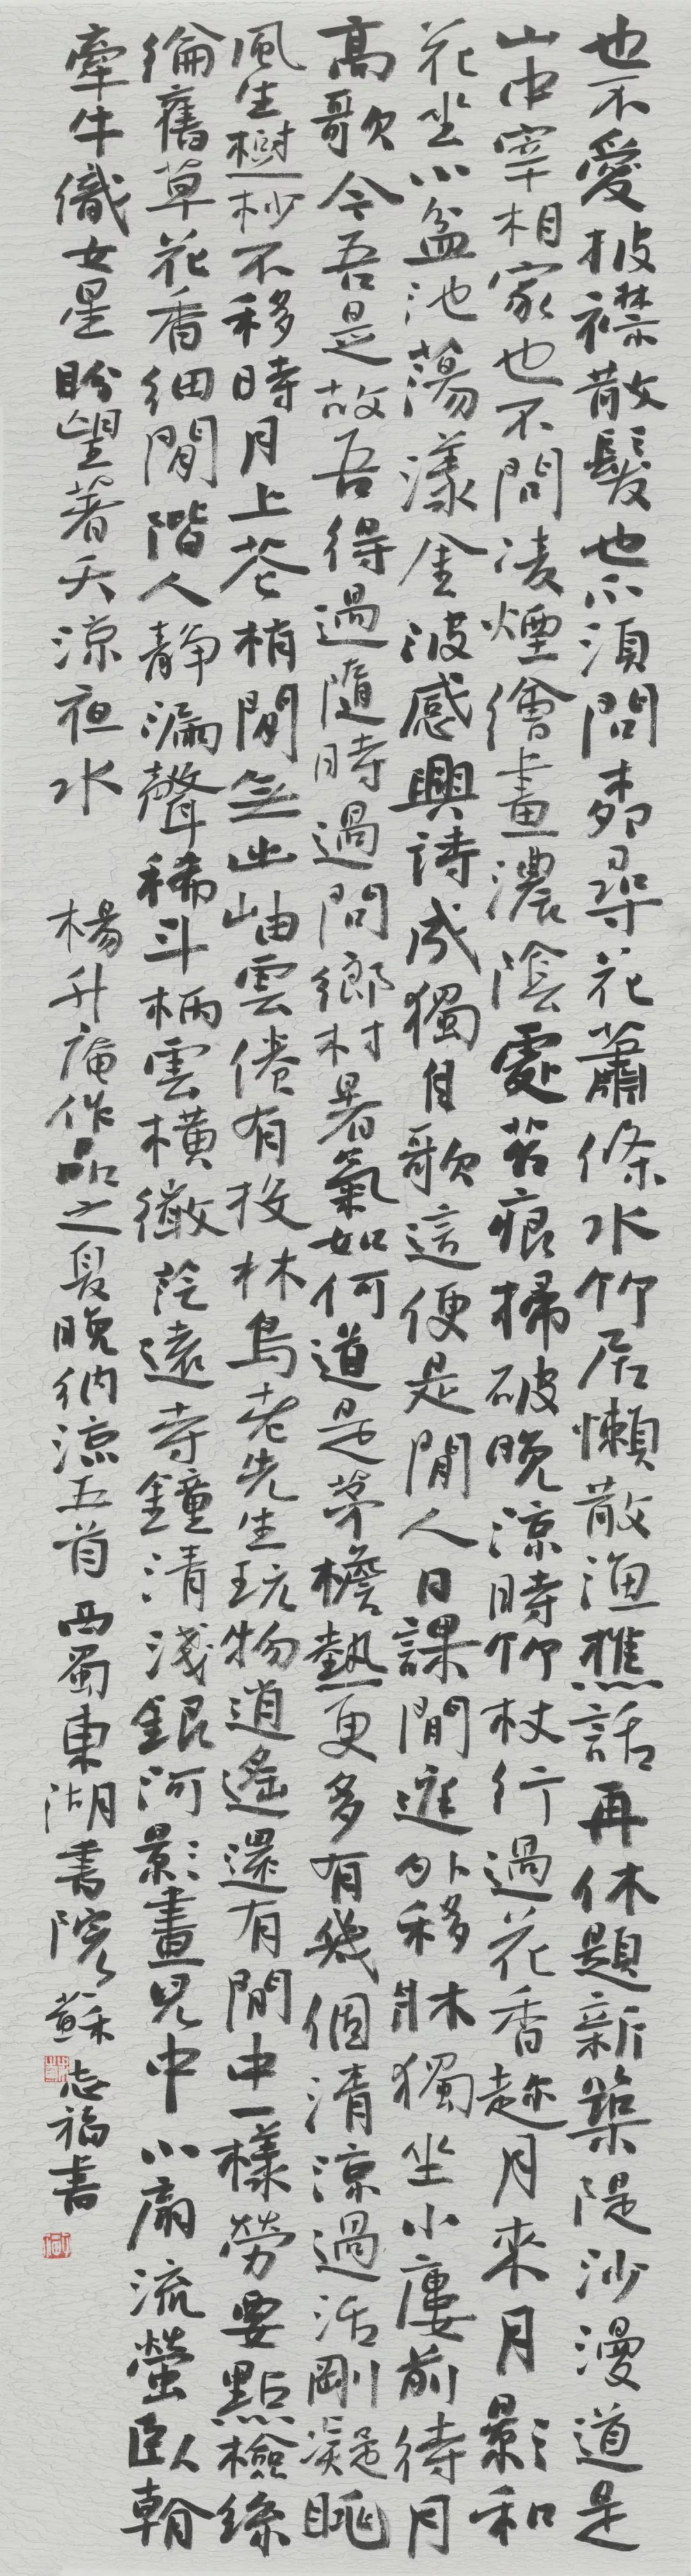 也不愛披襟散髮也不須問柳尋花蕭條水竹居懶散漁樵話再休題新築隄沙漫道是
山中宰相家也不問凌煙繪畫濃陰處苔痕掃破晚涼時竹杖行過花香趁月來月影和
花坐小盆池蕩漾金波感興詩成獨自歌這便是閒人日課閒庭外移牀獨坐小廔前待月
高歌今吾是故吾得過隨時過問鄉村暑氣如何道是茅檐熱更多有幾個清涼過活剛凝眺
風生樹杪不移時月上花梢閒無出岫雲倦有投林鳥老先生玩物逍遙還有閒中一樣勞要點檢綠
綸舊草花香細閒階人靜漏聲稀斗柄雲橫徹陰遠寺鐘清淺銀河影畫兒中小扇流螢臥輧
牽牛織女星盼望著天涼夜水
楊升庵作品之夏晚納涼五首
西蜀東湖書院蘇志福書